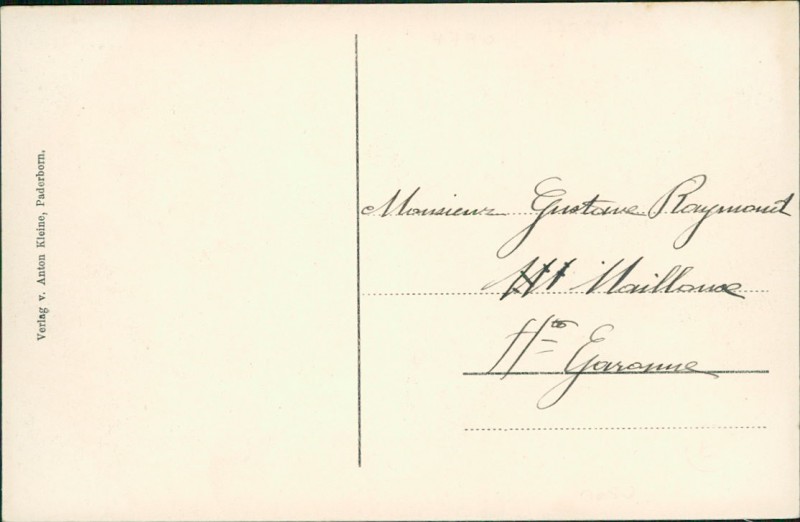 Verlag v. Anton Kleine, Paderborn.
Monsieur Gustave Raymond
Hte Garonne